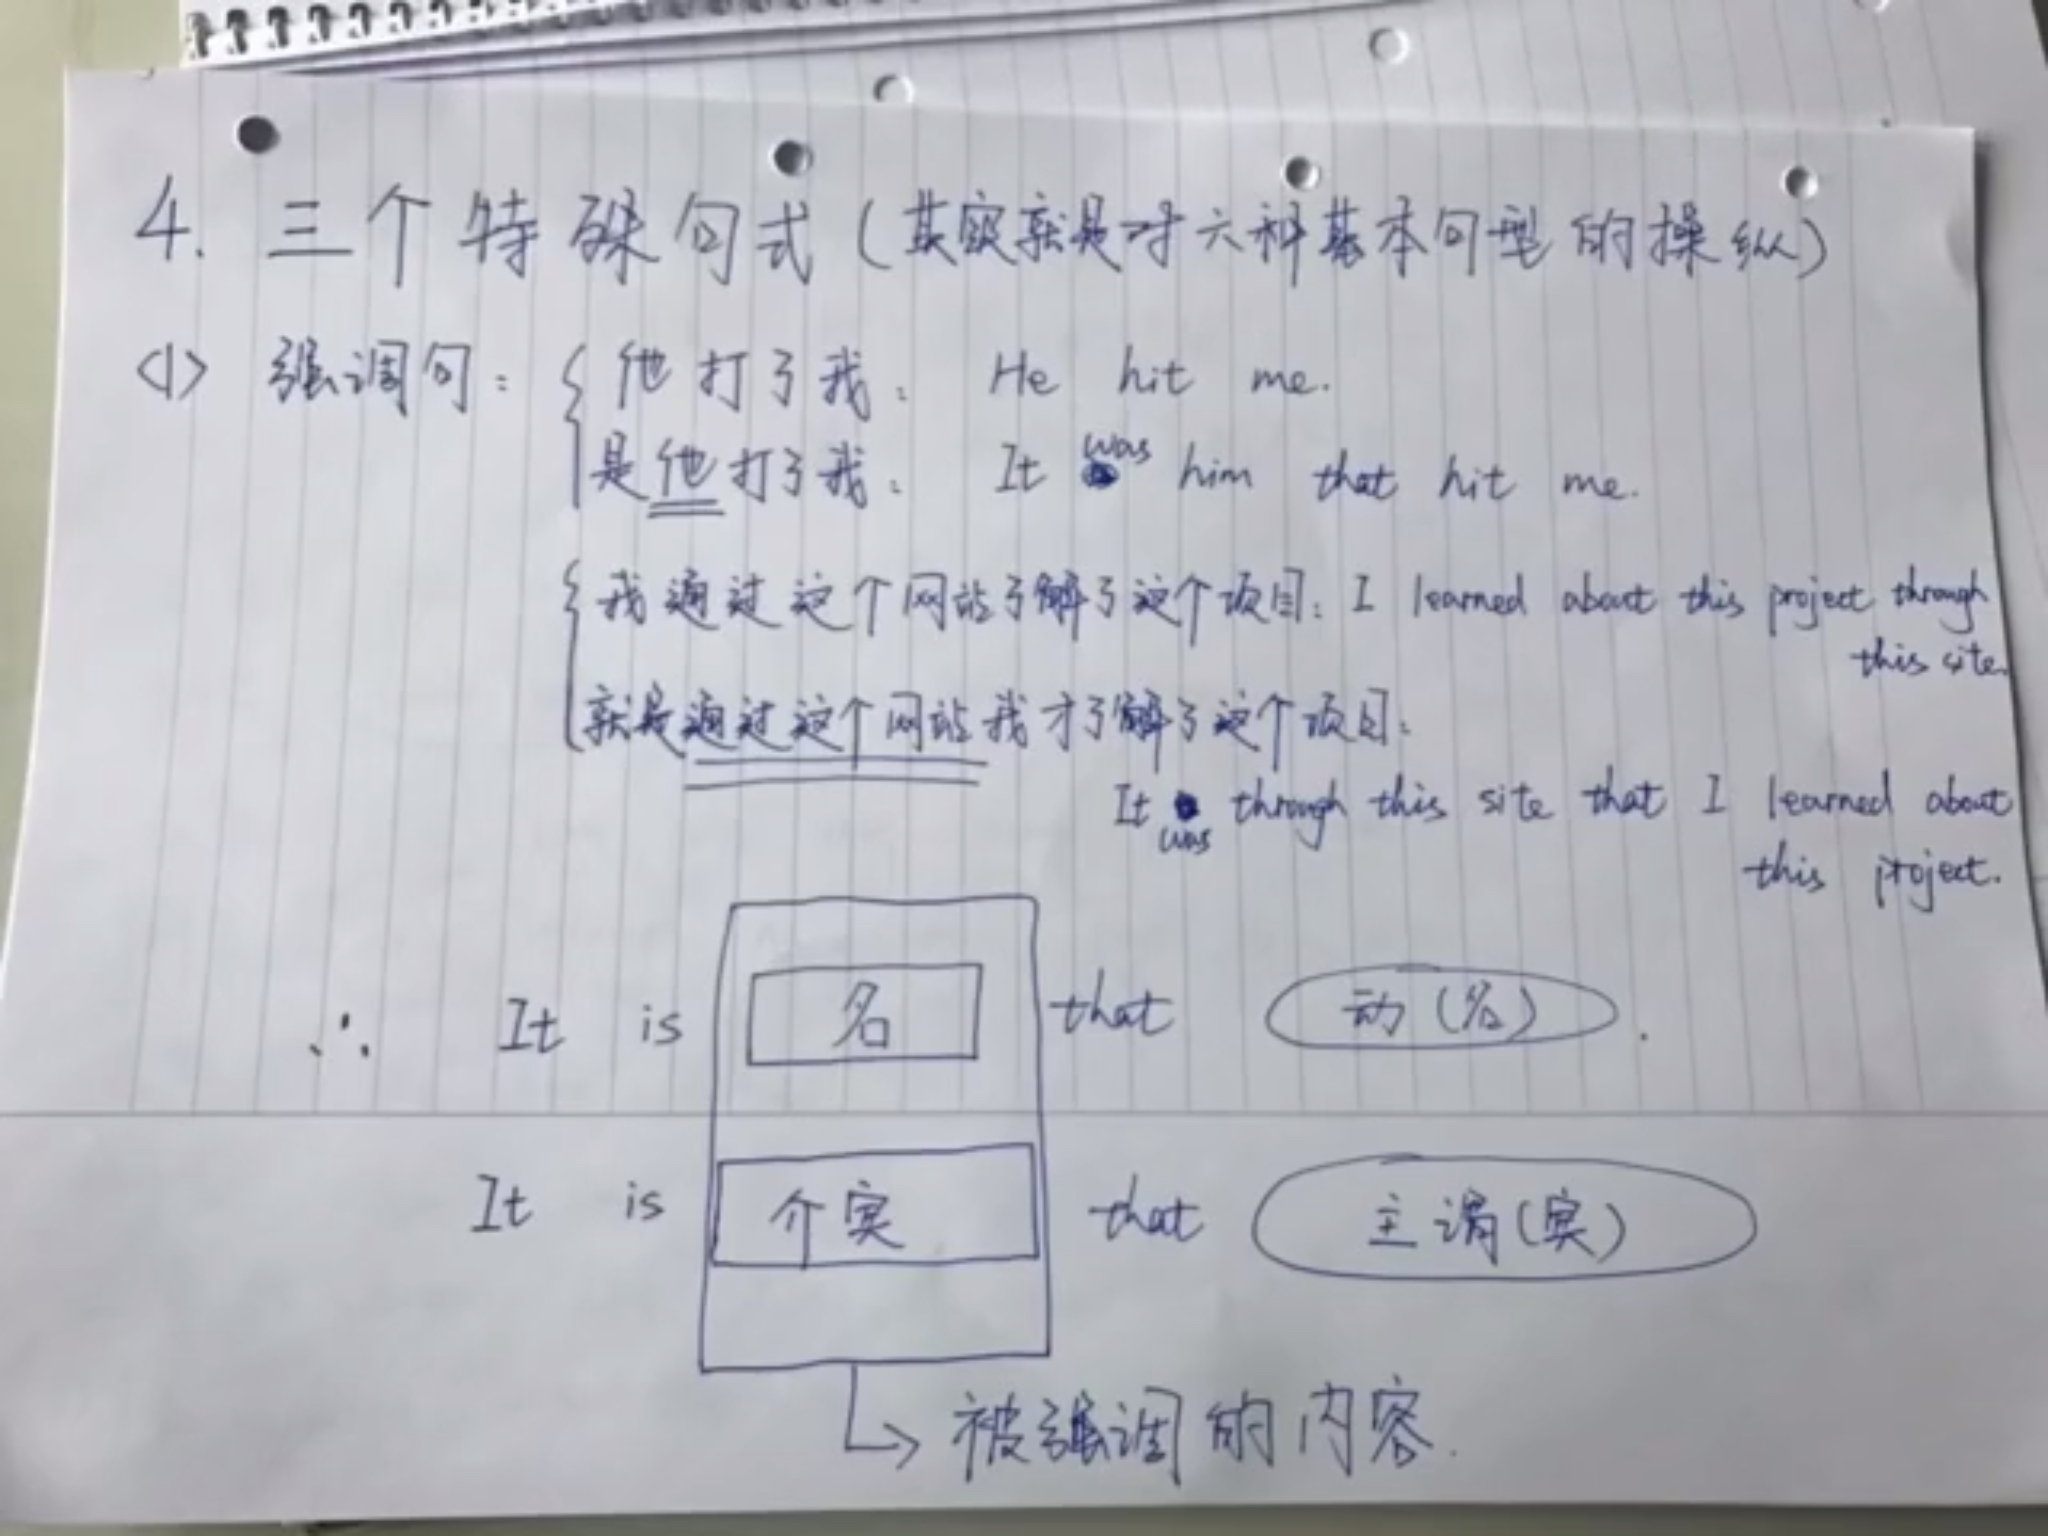 4. 三个特殊句式（其实就是对六种基本句型的操纵）
<1> 强调句： 他打了我： He hit me.
是他打了我： It was him that hit me.
我通过这个网站了解了这个项目： I learned about this project through
this site.
就是通过这个网站我才了解了这个项目：
It was through this site that I learned about
this project.
∴ It is 名 that 动（名）.
It is 介宾 that 主谓（宾）
被强调的内容.